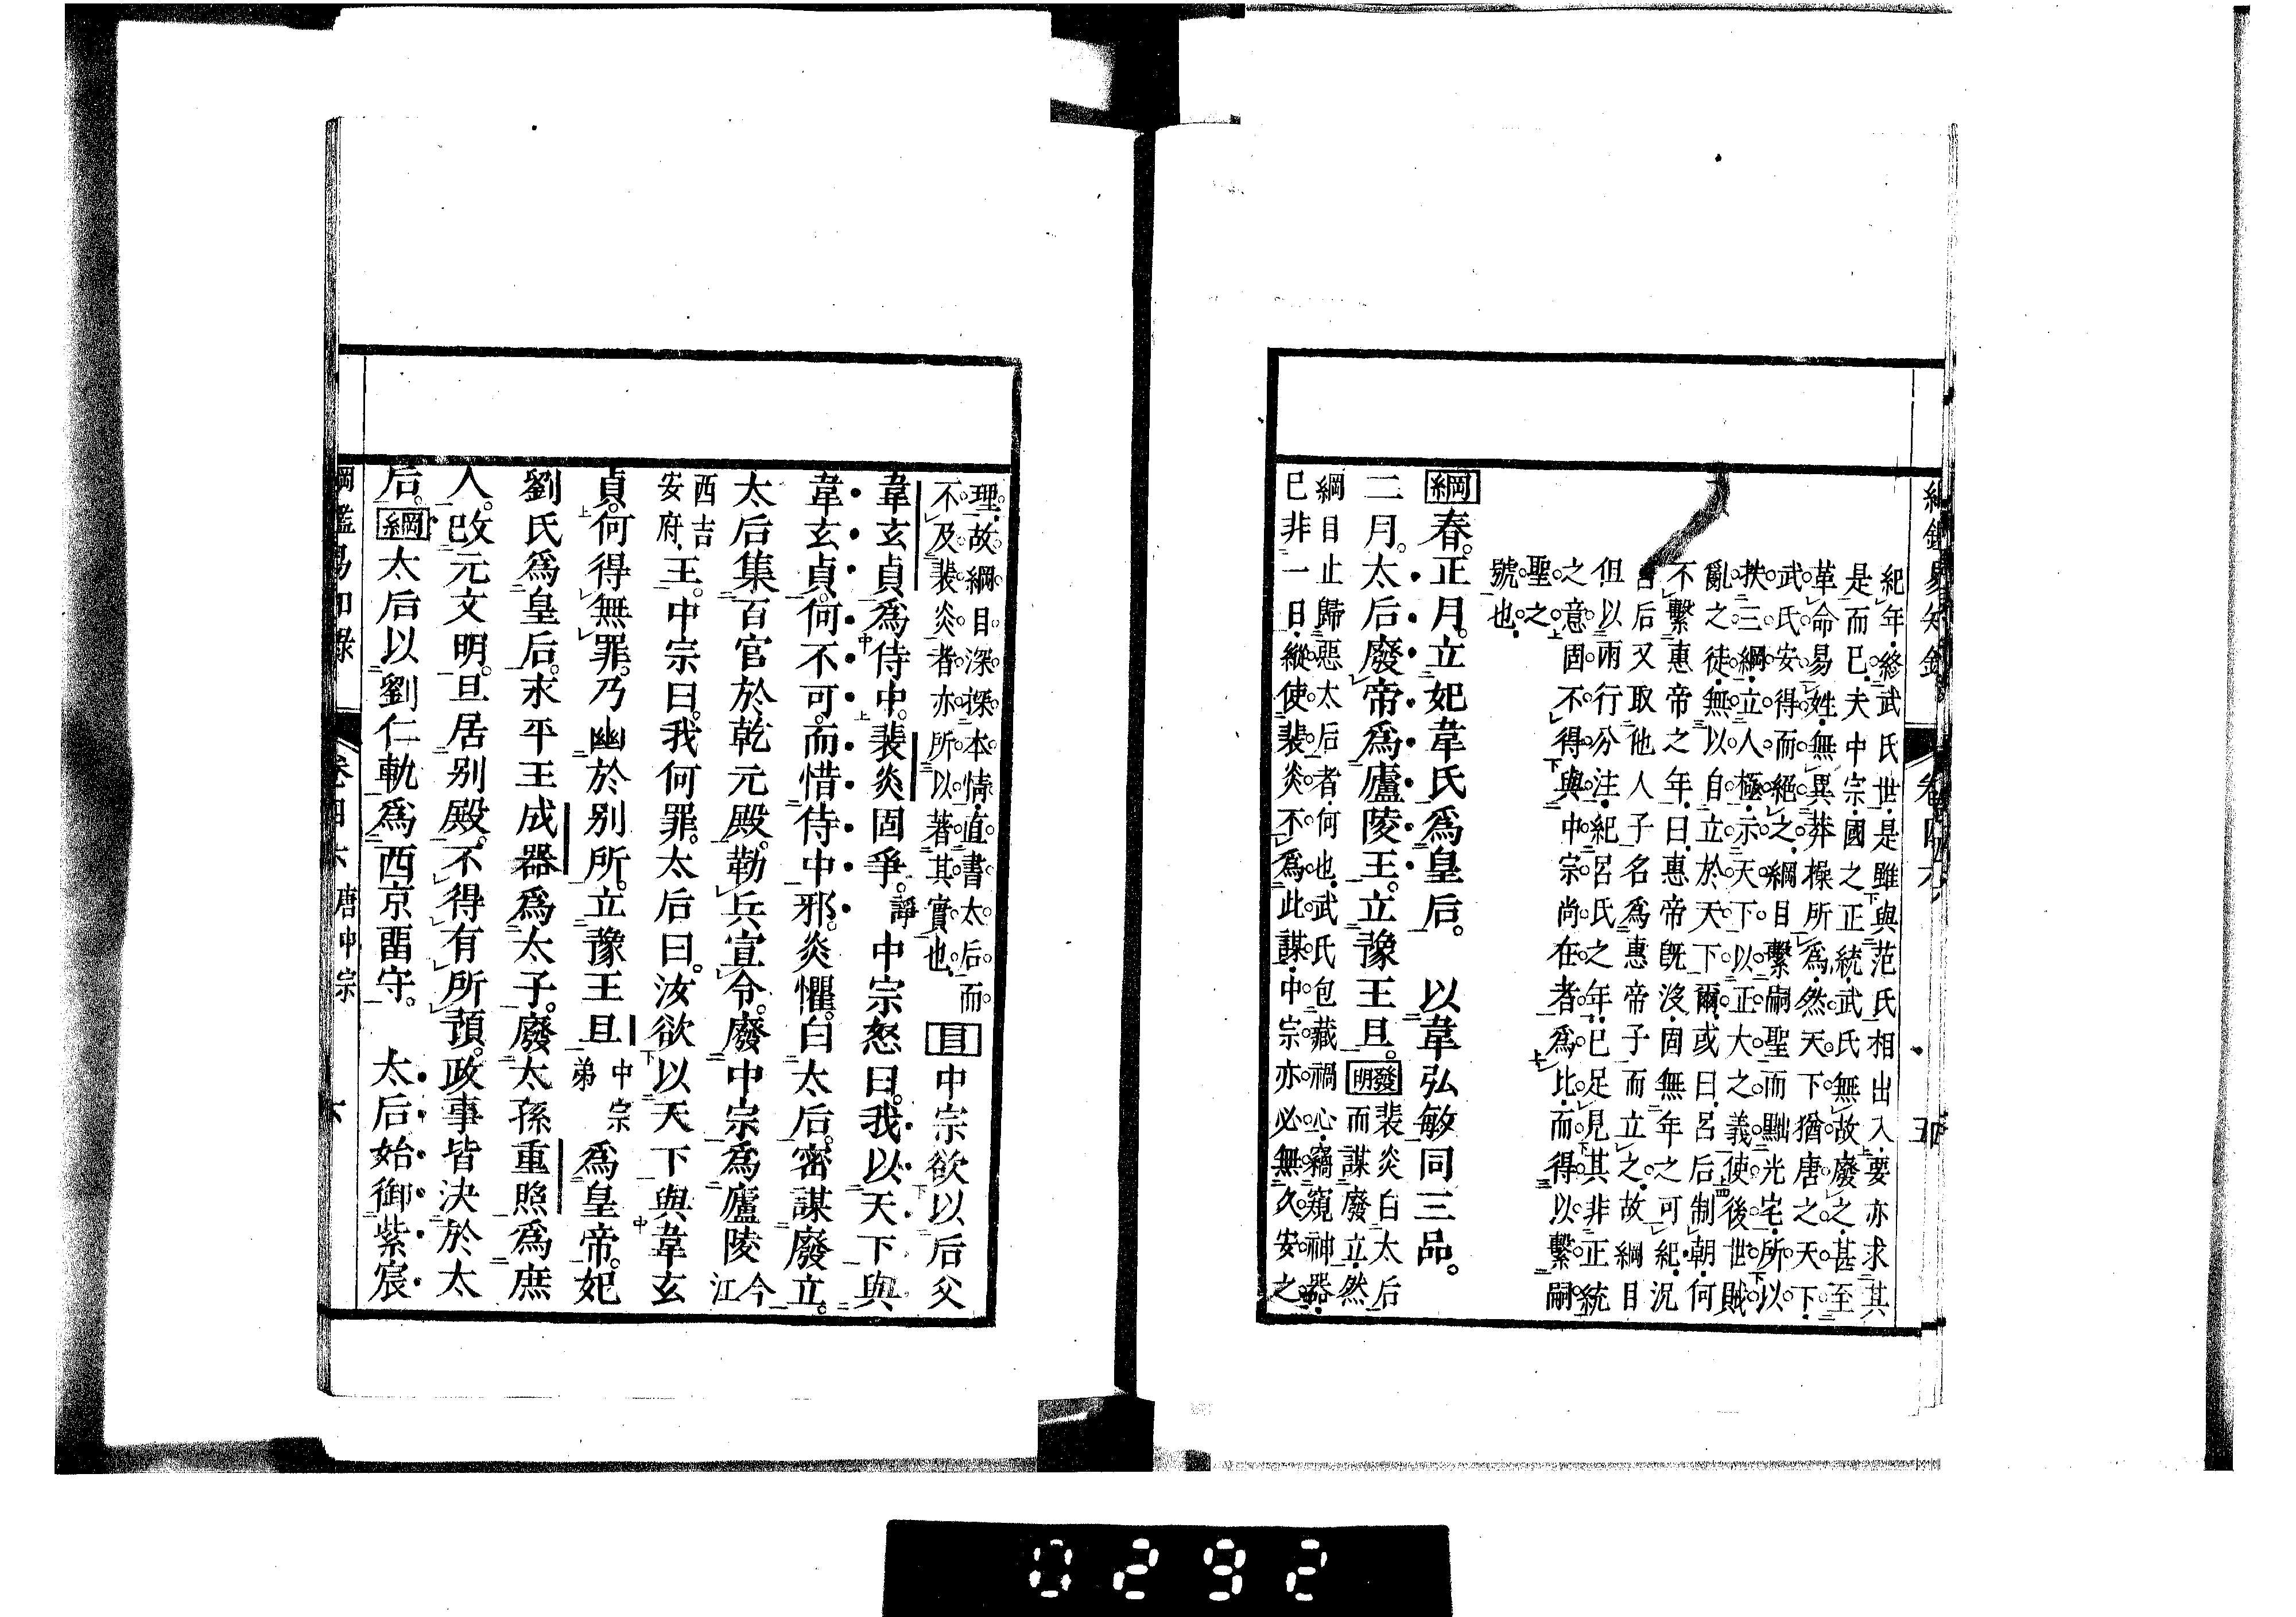 綱鑑易知錄 卷四六 五
紀年終武氏世是雖與范氏相出入要亦求其
是而已夫中宗國之正統武氏無故廢之甚至
革命易姓無異莽操所爲然天下猶唐之天下
武氏安得而絕之綱目繫嗣聖而黜光宅所以
扶三綱立人極示天下以正大之義使後世賊
亂之徒無以自立於天下爾或曰呂后制朝何
不繫惠帝之年曰惠帝既沒固無年之可紀況
呂后又取他人子名爲惠帝子而立之故綱目
但以兩行分注紀呂氏之年已足見其非正統
之意固不得與中宗尚在者爲比而得以繫嗣
聖之
號也
綱春。正月。立妃韋氏爲皇后。　以韋弘敏同三品。
二月。太后廢帝爲廬陵王。立豫王旦。發明裴炎白太后
而謀廢立然
綱目止歸惡太后者何也武氏包藏禍心竊窺神器
已非一日縱使裴炎不爲此謀中宗亦必無久安之
理故綱目深探本情直書太后而
不及裴炎者亦所以著其實也目中宗欲以后父
韋玄貞爲侍中。裴炎固爭。諍中宗怒曰。我以天下與
韋玄貞。何不可。而惜侍中邪。炎懼。白太后。密謀廢立。
太后集百官於乾元殿。勒兵宣令。廢中宗爲廬陵今江
西吉
安府王。中宗曰。我何罪。太后曰。汝欲以天下與韋玄
貞。何得無罪。乃幽於別所。立豫王旦中宗弟爲皇帝。妃
劉氏爲皇后。永平王成器爲太子。廢太孫重照爲庶
人。改元文明。旦居別殿。不得有所預。政事皆決於太
后。綱太后以劉仁軌爲西京畱守。　太后始御紫宸
綱鑑易知錄 卷四六 唐中宗 六
0292